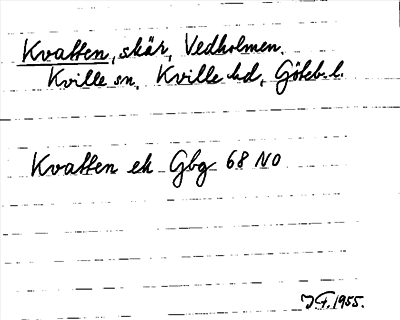 Kvatten, skär, Vedholmen.
Kville sn, Kville hd, Göteb. l.
Kvatten ek Gbg 68 NO
1955.